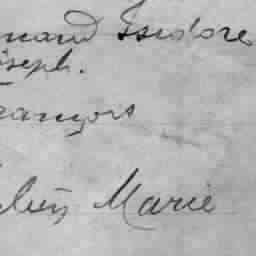 nand Isidore
oseph.
rançois
Marie